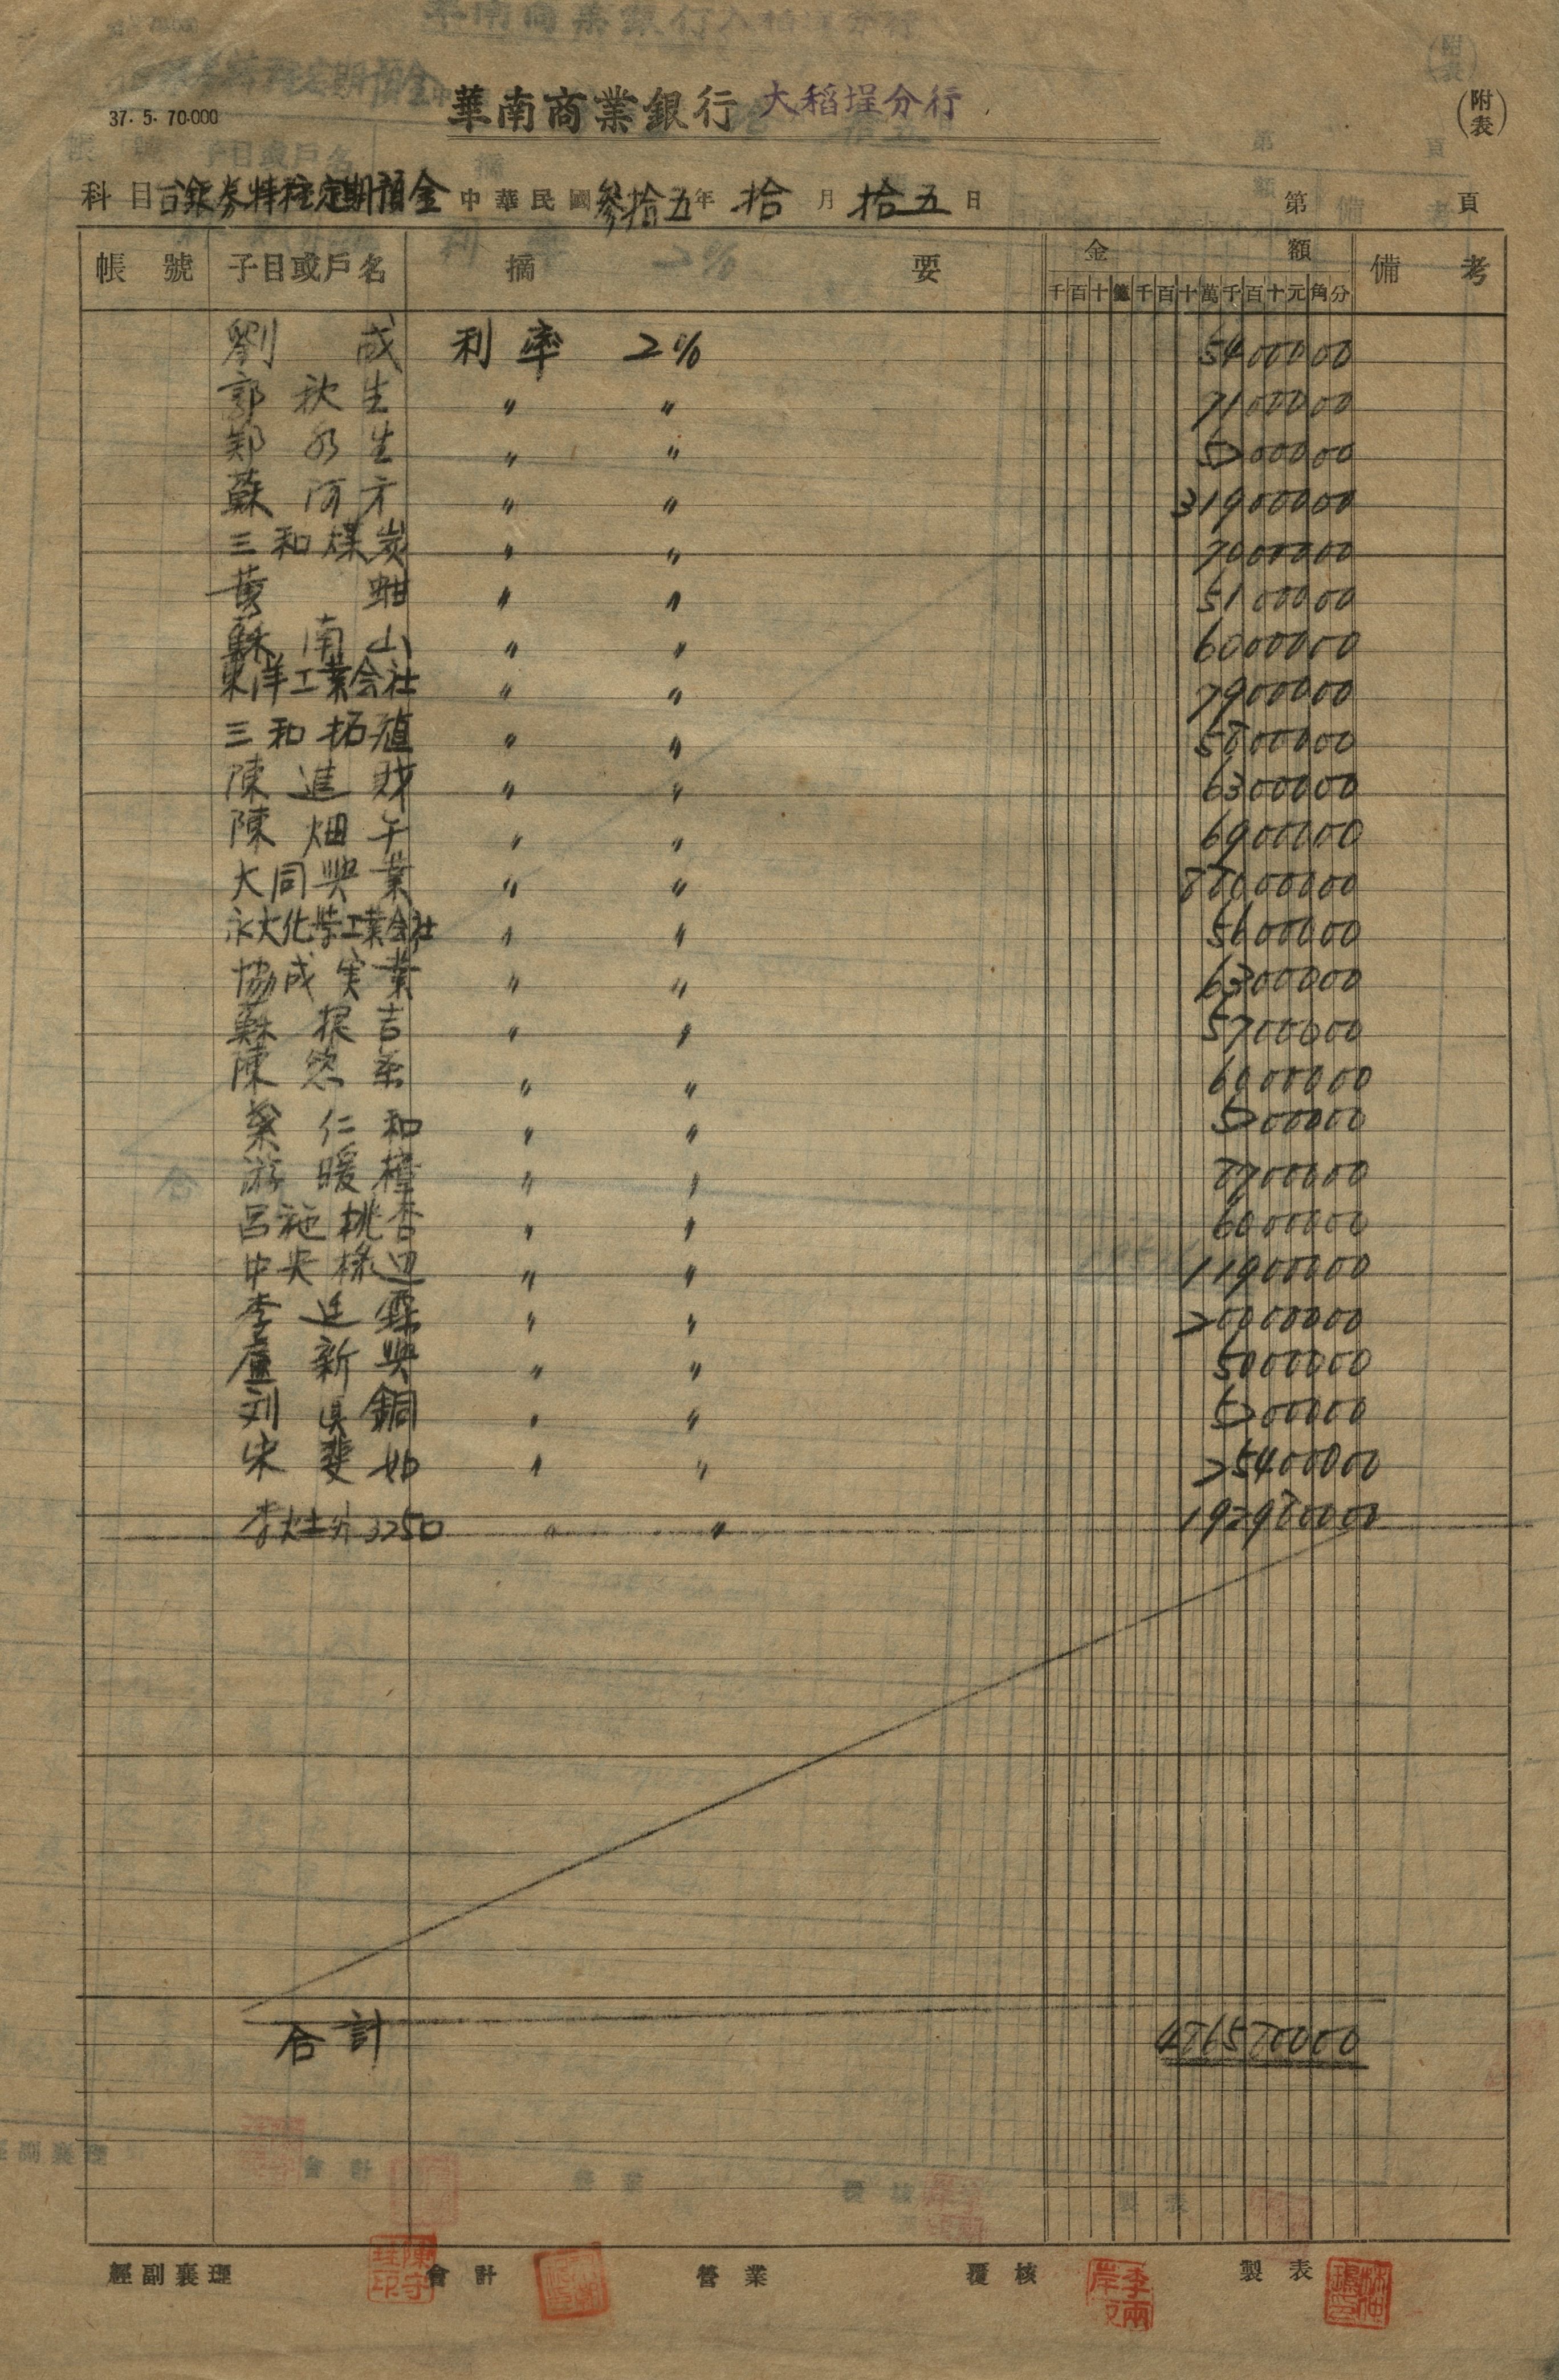 37. 5. 70.000
華南商業銀行 大稻埕分行
(附表)
科目 台銀券特種定期預金 中華民國 參拾五年 拾 月 拾五 日 第 頁
帳號 子目或戶名 摘要 金額 備考
千百十億千百十萬千百十元角分
劉 成 利率 2% 5400000
郭秋生 〃 〃 7100000
鄭水生 〃 〃 5200000
蘇阿才 〃 〃 31900000
三和煤炭 〃 〃 7000000
黃 蚶 〃 〃 5100000
蘇南山 〃 〃 6000000
東洋工業会社 〃 〃 7900000
三和拓殖 〃 〃 5800000
陳進財 〃 〃 6300000
陳畑午 〃 〃 6900000
大同興業 〃 〃 88000000
永大化学工業会社 〃 〃 5600000
協成実業 〃 〃 6300000
蘇根吉 〃 〃 5700000
陳 〃 〃 6000000
葉仁和 〃 〃 5200000
游暖樟 〃 〃 8700000
呂施桃杏 〃 〃 6000000
中央 〃 〃 11900000
李廷霖 〃 〃 20000000
盧新興 〃 〃 5000000
刘 銅 〃 〃 5200000
宋斐如 〃 〃 25400000
李灶外3250 〃 〃 192980000
合計 486580000
經副襄理 會計 營業 覆核 製表